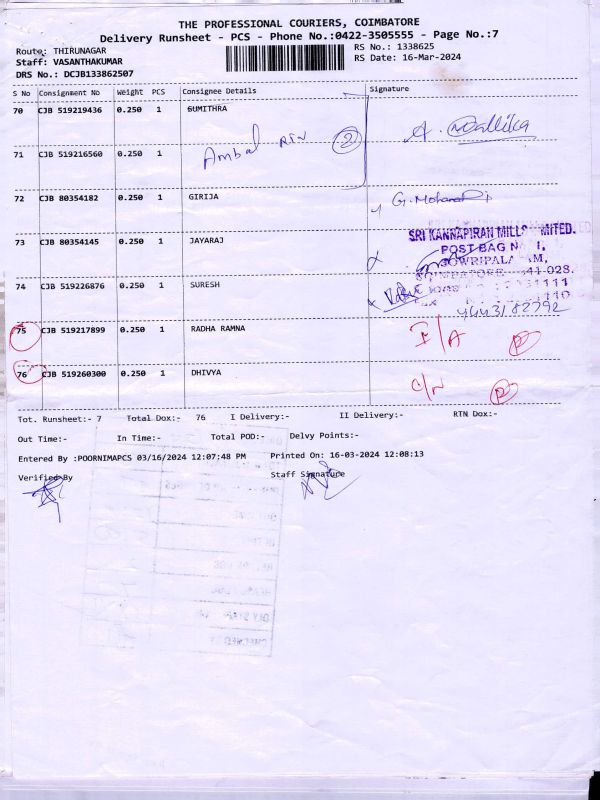 THE PROFESSIONAL COURIERS, COIMBATORE
Delivery Runsheet - PCS - Phone No.:0422-3505555 - Page No.:7
Route: THIRUNAGAR
RS No.: 1338625
Staff: VASANTHAKUMAR
RS Date: 16-Mar-2024
DRS No.: DCJB133862507
S No Consignment No Weight PCS Consignee Details Signature
70 CJB 519219436 0.250 1 SUMITHRA
A. Mallika
Ambal RTN 2
71 CJB 519216560 0.250 1
72 CJB 80354182 0.250 1 GIRIJA
G. Mohana
SRI KANNAPIRAN MILLS LIMITED.
73 CJB 80354145 0.250 1 JAYARAJ
POST BAG N
GOWRIPALA AM,
028.
74 CJB 519226876 0.250 1 SURESH
75 CJB 519217899 0.250 1 RADHA RAMNA
I/A P
76 CJB 519260300 0.250 1 DHIVYA
C/N P
Tot. Runsheet:- 7 Total Dox:- 76 I Delivery:- II Delivery:- RTN Dox:-
Out Time:- In Time:- Total POD:- Delvy Points:-
Entered By :POORNIMAPCS 03/16/2024 12:07:48 PM Printed On: 16-03-2024 12:08:13
Verified By Staff Signature